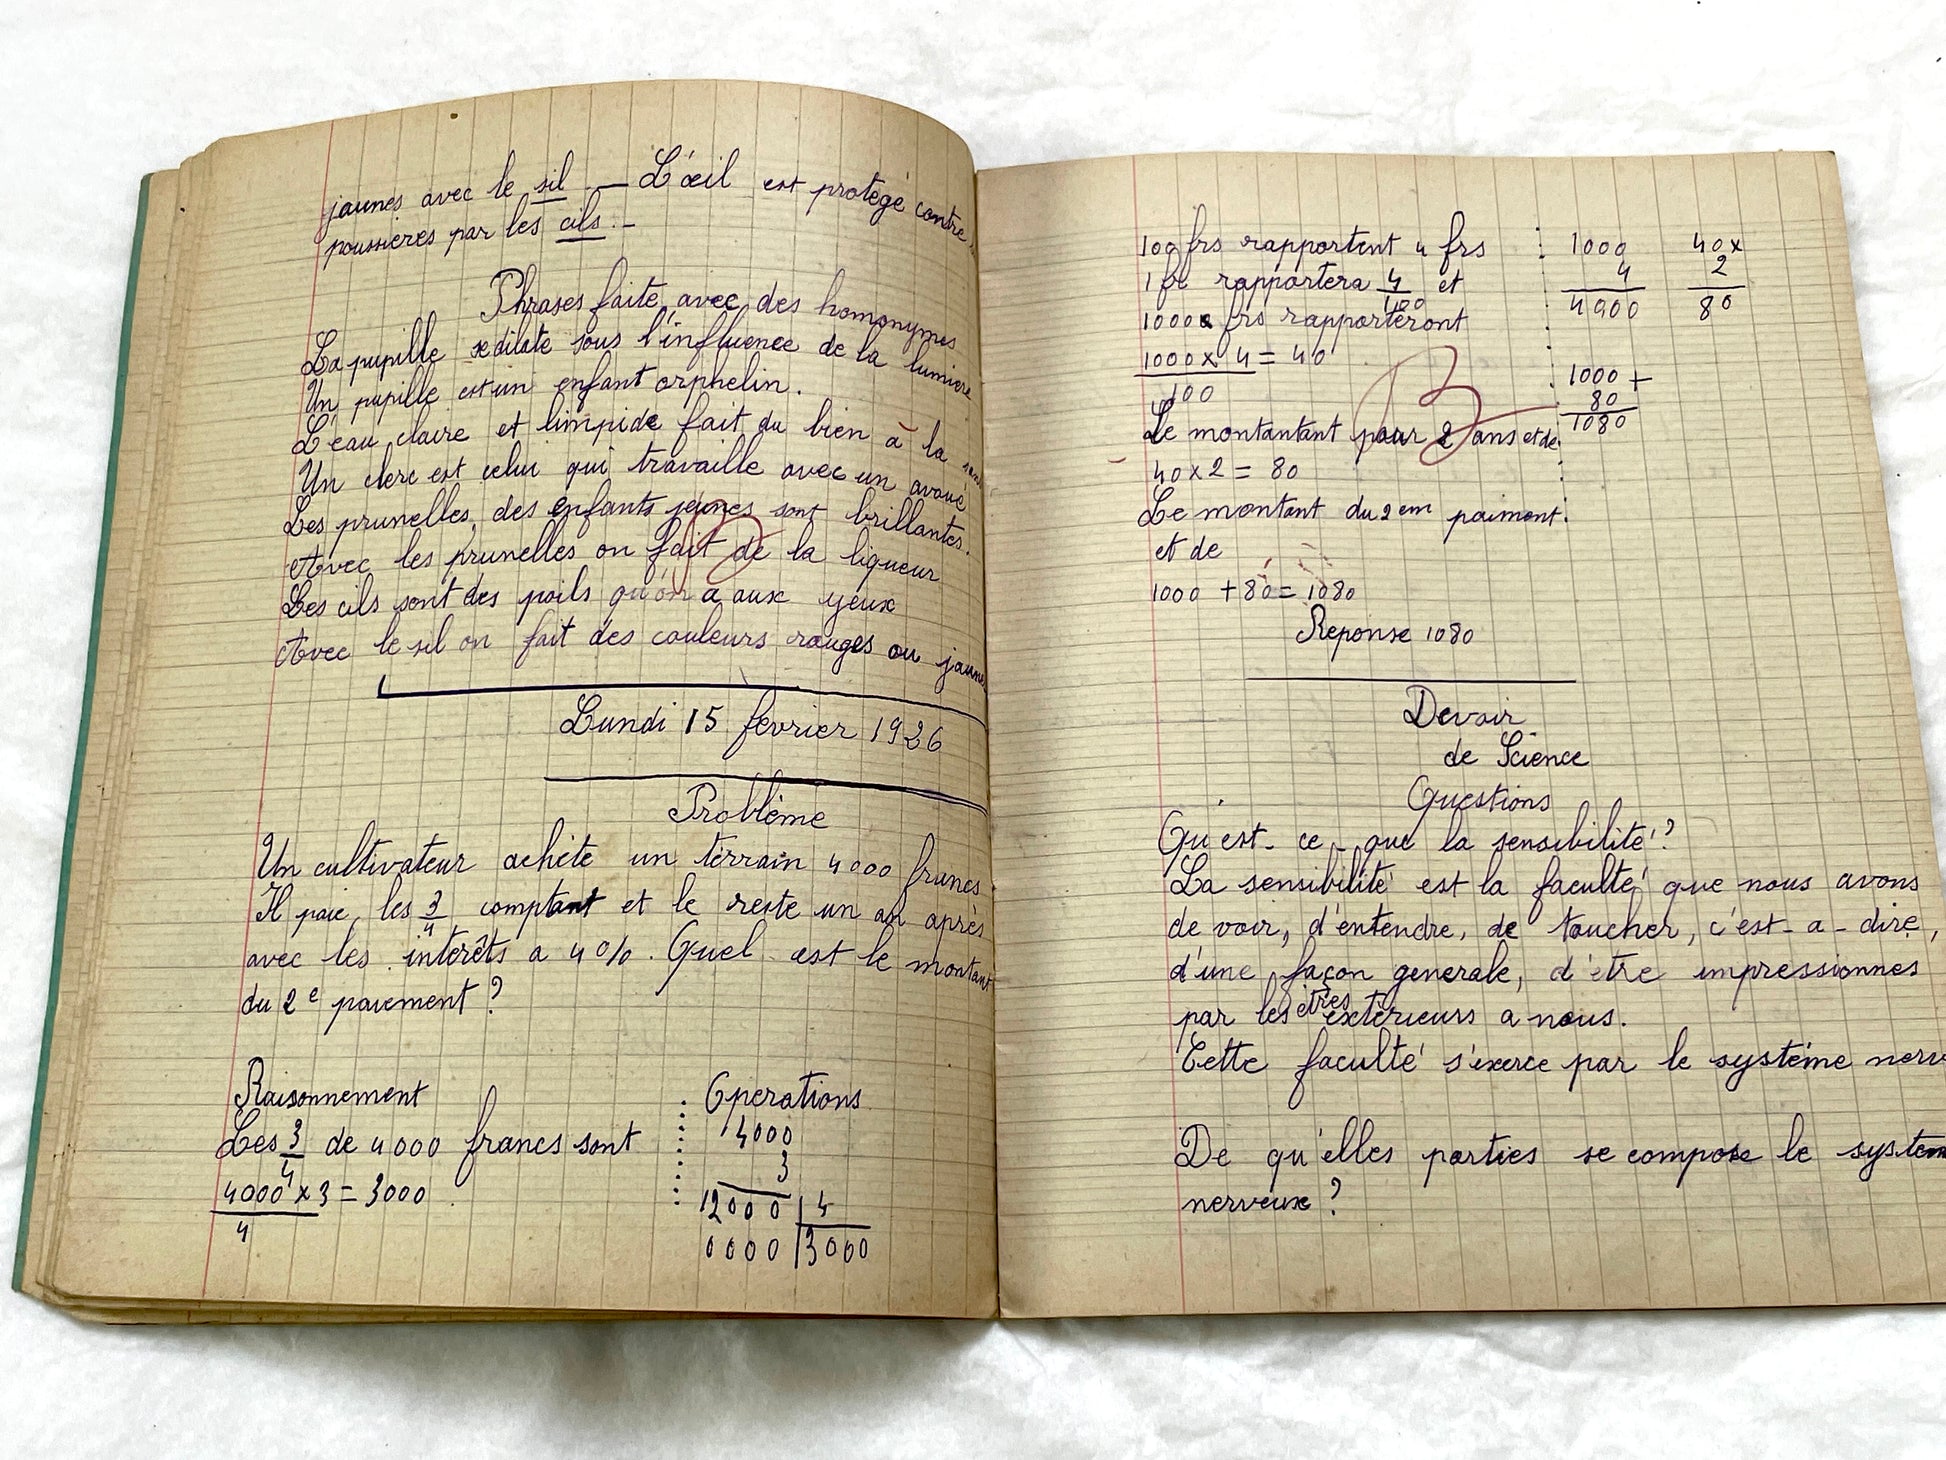 jaunes avec le sil. — L'œil est protégé contre
poussières par les cils. -
Phrases faite avec des homonymes
La pupille se dilate sous l'influence de la lumière
Un pupille est un enfant orphelin.
L'eau claire et limpide fait du bien à la
Un clerc est celui qui travaille avec un avoué
Les prunelles des enfants jeunes sont brillantes.
Avec les prunelles on fait de la liqueur
Les cils sont des poils qu'on a aux yeux
Avec le sil on fait des couleurs rouges ou jaunes
Lundi 15 février 1926
Problème
Un cultivateur achète un terrain 4000 francs
Il paie les 3/4 comptant et le reste un an après
avec les intérêts a 4%. Quel est le montant
du 2e paiement ?
Raisonnement
Les 3/4 de 4000 francs sont
4000 x 3 = 3000
4
Operations
4000
3
12000 | 4
0000 | 3000
100 frs rapportent 4 frs
1 fr rapportera 4/100 et
1000 frs rapporteront
1000 x 4 = 40
100
Le montantant pour 2 ans et de
40 x 2 = 80
Le montant du 2em paiment.
et de
1000 + 80 = 1080
Reponse 1080
1000
4
4000
40 x
2
80
1000 +
80
1080
Devoir
de Science
Questions
Qu'est-ce-que la sensibilité ?
La sensibilité est la faculté que nous avons
de voir, d'entendre, de toucher, c'est-a-dire,
d'une façon generale, d'être impressionnes
par les êtres extérieurs a nous.
Cette faculté s'exerce par le système nerv
De qu'elles parties se compose le system
nerveux ?